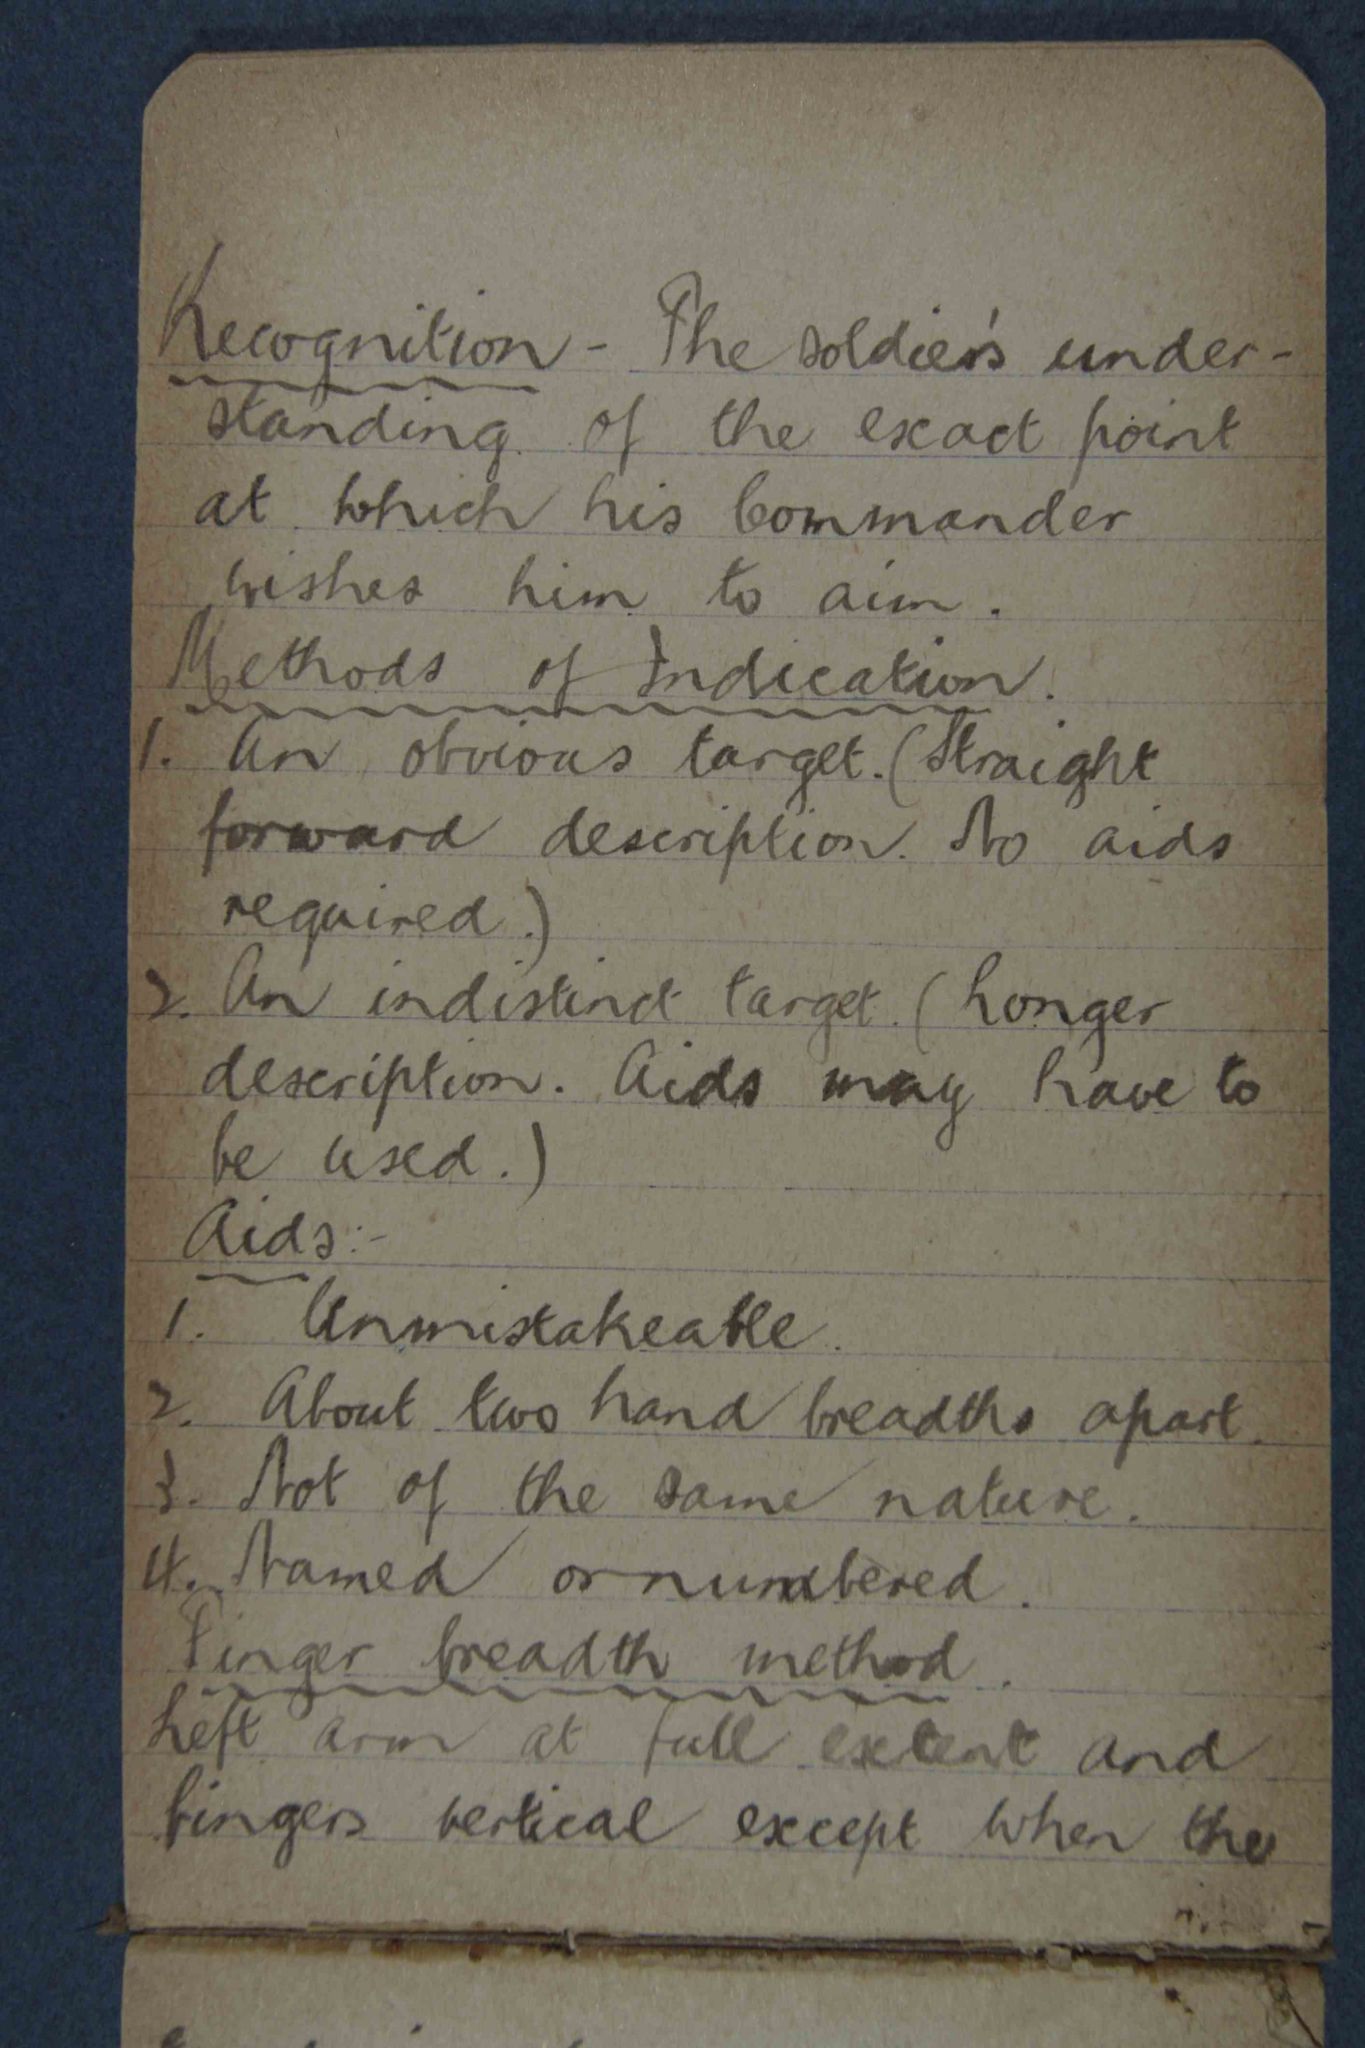 Recognition - The soldier's under-
standing of the exact point
at which his Commander
wishes him to aim.
Methods of Indication.
1. An obvious target. (Straight
forward description. No aids
required.)
2. An indistinct target. (Longer
description. Aids may have to
be used.)
Aids:-
1. Unmistakeable.
2. About two hand breadths apart.
3. Not of the same nature.
4. Named or numbered.
Finger breadth method.
Left arm at full extent and
fingers vertical except when the